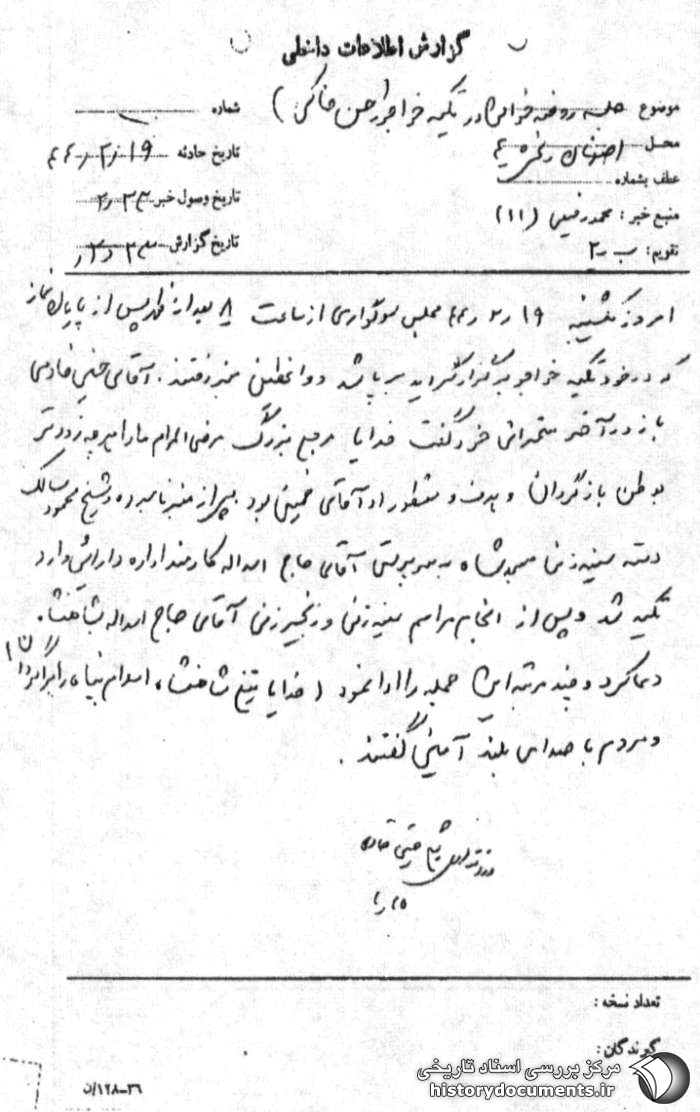 گزارش اطلاعات داخلی
موضوع جلسه روضه خوانی در تکیه خواجو (حسن خاکی)
شماره
محل اصفهان
تاریخ حادثه ۱۹ر۲ر۴۴
عطف بشماره
تاریخ وصول خبر ۲۳ر۲
منبع خبر: محمد رفیعی (۱۱)
تاریخ گزارش ۲۳ر۲
تقویم: ب ر۲
امروز یکشنبه ۱۹ر۲ر۴۴ مجلس سوگواری از ساعت ۸ بعدازظهر پس از پایان نماز
که در خود تکیه خواجو برگزار گردید برپا شد و واعظین منبر رفتند. آقای
باز در آخر سخنرانی خود گفت خدایا مرجع بزرگ مرضی المرام ما را هرچه زودتر
بوطن بازگردان و هدف و منظور او آقای خمینی بود پس از منبر نامبرده و شیخ محمود سالک
دسته سینه زنی مسجد شاه به سرپرستی آقای حاج اسداله کارمند اداره دارائی وارد
تکیه شد و پس از انجام مراسم سینه زنی و زنجیر زنی آقای حاج اسداله بشاهنشاه
دعا کرد و چند مرتبه این جمله را ادا نمود (خدایا تیغ شاهنشاه اسلام پناه را بران گردان)
و مردم با صدای بلند آمین گفتند.
تعداد نسخه:
گیرندگان:
۳۶-۱۲۸/ن
مرکز بررسی اسناد تاریخی
historydocuments.ir